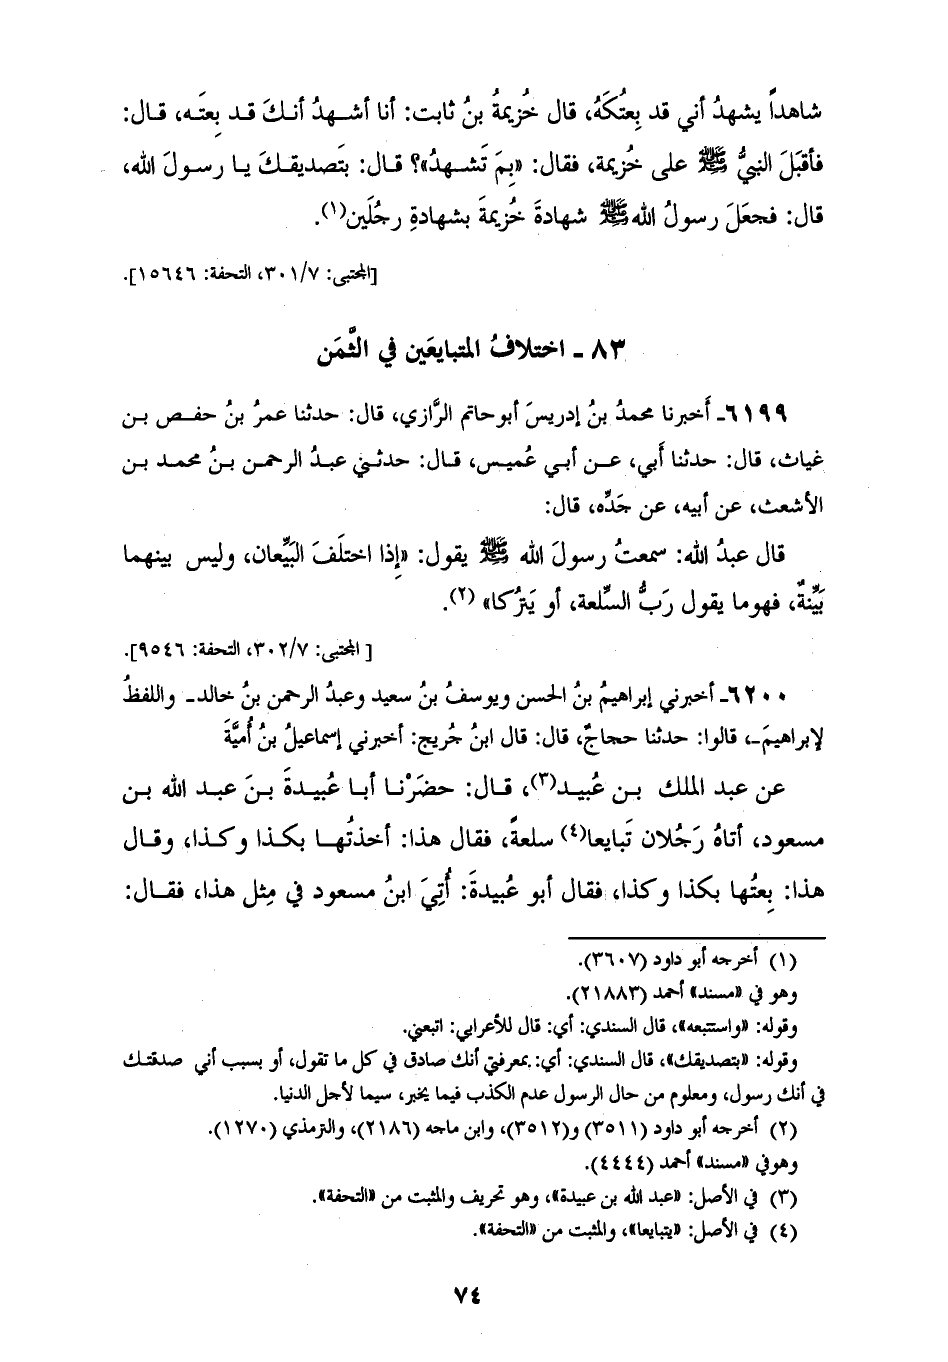 شاهداً يشهدُ أني قد بِعتُكَهُ، قال خُزيمةُ بنُ ثابت: أنا أشهدُ أنكَ قد بِعتَه، قال:
فأقبَلَ النبيُّ ﷺ على خُزيمة، فقال: «بِمَ تَشهدُ»؟ قال: بتَصديقكَ يا رسولَ الله،
قال: فجعَلَ رسولُ الله ﷺ شهادةَ خُزيمةَ بشهادةِ رجُلَين(١).
[المجتبى: ٣٠١/٧، التحفة: ١٥٦٤٦].
٨٣ - اختلافُ المتبايعَين في الثَّمَن
٦١٩٩- أَخبرنا محمدُ بنُ إدريسَ أبوحاتم الرَّازي، قال: حدثنا عمرُ بنُ حفص بن
غياث، قال: حدثنا أَبي، عن أبي عُميس، قال: حدثني عبدُ الرحمن بنُ محمد بن
الأشعث، عن أبيه، عن جَدِّه، قال:
قال عبدُ الله: سمعتُ رسولَ الله ﷺ يقول: «إِذا اختلَفَ البَيِّعان، وليس بينهما
بَيِّنةٌ، فهوما يقول رَبُّ السِّلعة، أو يَترُكا» (٢).
[ المجتبى: ٣٠٢/٧، التحفة: ٩٥٤٦].
٦٢٠٠- أخبرني إبراهيمُ بنُ الحسن ويوسفُ بنُ سعيد وعبدُ الرحمن بنُ خالد- واللفظُ
لإبراهيمَ-، قالوا: حدثنا حجاجٌ، قال: قال ابنُ جُريج: أخبرني إسماعيلُ بنُ أُميَّةَ
عن عبد الملك بن عُبيد(٣)، قال: حضَرْنا أبا عُبيدةَ بنَ عبد الله بن
مسعود، أتاهُ رَجُلان تَبايعا(٤) سلعةً، فقال هذا: أخذتُها بكذا وكذا، وقال
هذا: بِعتُها بكذا وكذا، فقال أبو عُبيدةَ: أُتِيَ ابنُ مسعود في مِثل هذا، فقال:
(١) أخرجه أبو داود (٣٦٠٧).
وهو في «مسند» أحمد (٢١٨٨٣).
وقوله: «واستتبعه»، قال السندي: أي: قال للأعرابي: اتبعني.
وقوله: «بتصديقك»، قال السندي: أي: بمعرفتي أنك صادق في كل ما تقول، أو بسبب أني صدقتك
في أنك رسول، ومعلوم من حال الرسول عدم الكذب فيما يخبر، سيما لأجل الدنيا.
(٢) أخرجه أبو داود (٣٥١١) و(٣٥١٢)، وابن ماجه (٢١٨٦)، والترمذي (١٢٧٠).
وهوفي «مسند» أحمد (٤٤٤٤).
(٣) في الأصل: «عبد الله بن عبيدة»، وهو تحريف والمثبت من «التحفة».
(٤) في الأصل: «يتبايعا»، والمثبت من «التحفة».
٧٤